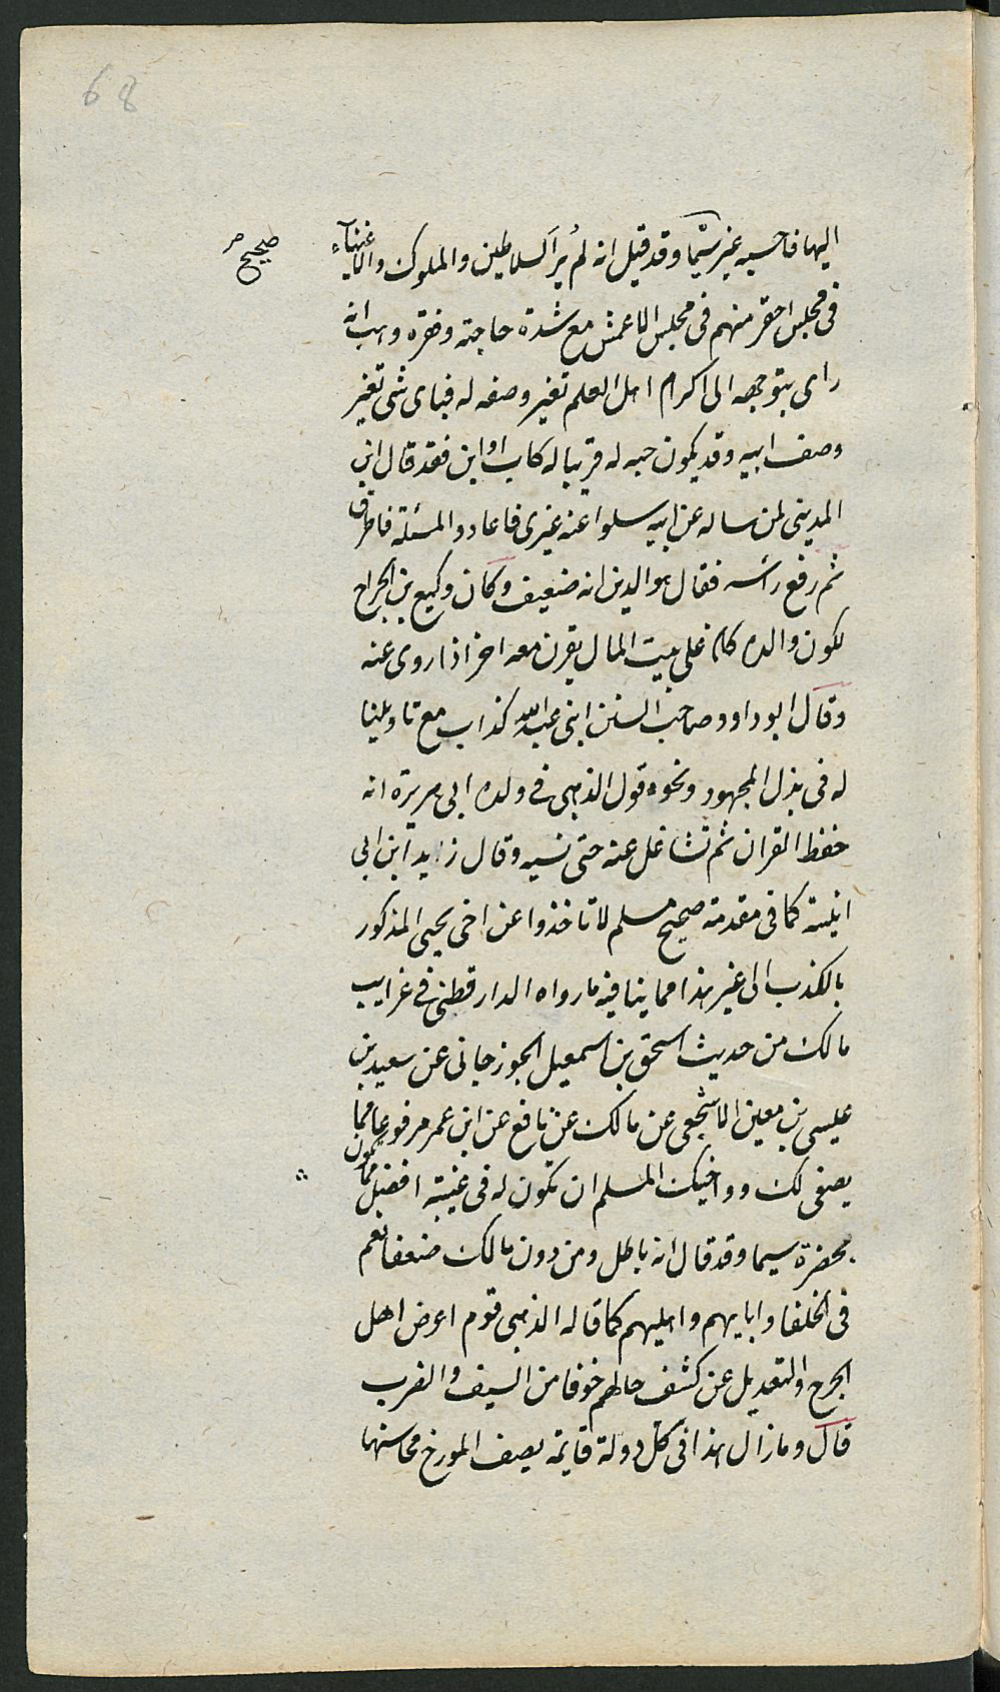 68
اليها فاحسبه غير سيما وقد قيل انه لم ير السلاطين والملوك والاغنيآء
صحيح
فى مجلس احقر منهم فى مجلس الاعمش مع شدة حاجته وفقره وهب انه
راى بتوجهه الى اكرام اهل العلم تغير وصفه له فباى شى تغير
وصف ابيه وقد يكون حبه له قريبا له كاب او ابن فقد قال ابن
المدينى لمن ساله عن ابيه سلوا عنه غيرى فاعادوا المسئلة فاطرق
ثم رفع رأسه فقال هو الدين انه ضعيف وكان وكيع بن الجراح
لكون والده كان على بيت المال يقرن معه اخر اذا روى عنه
وقال ابو داود صاحب السنن ابنى عبد الله كذاب مع تاويلنا
له فى بذل المجهود ونحوه قول الذهبى فى ولده ابى هريرة انه
حفظ القران ثم تشاغل عنه حتى نسيه وقال زيد ابن ابى
انيسة كما فى مقدمة صحيح مسلم لا تاخذوا عن اخى يحيى المذكور
بالكذب الى غير هذا مما ينافيه ما رواه الدارقطنى فى غرايب
مالك من حديث اسحق بن اسمعيل الجوزجانى عن سعيد بن
عيسى بن معين الاشجعى عن مالك عن نافع عن ابن عمر مرفوعا مما
يصفى لك ود اخيك المسلم ان تكون له فى غيبته افضل مما تكون
بحضرة سيما وقد قال انه باطل ومن دون مالك ضعفا نعم
فى الخلفا وابايهم واهليهم كما قاله الذهبى قوم اعرض اهل
الجرح والتعديل عن كشف حالهم خوفا من السيف والضرب
قال وما زال هذا فى كل دولة قايمة يصف المورخ محاسنها